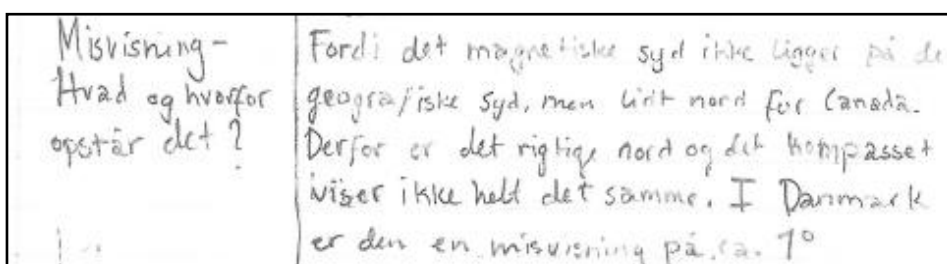 Misvisning-
Hvad og hvorfor
opstår det?
Fordi det magnetiske syd ikke ligger på de
geografiske syd, men lidt nord for Canada.
Derfor er det rigtige nord og det kompasset
viser ikke helt det samme. I Danmark
er den en misvisning på ca. 1°